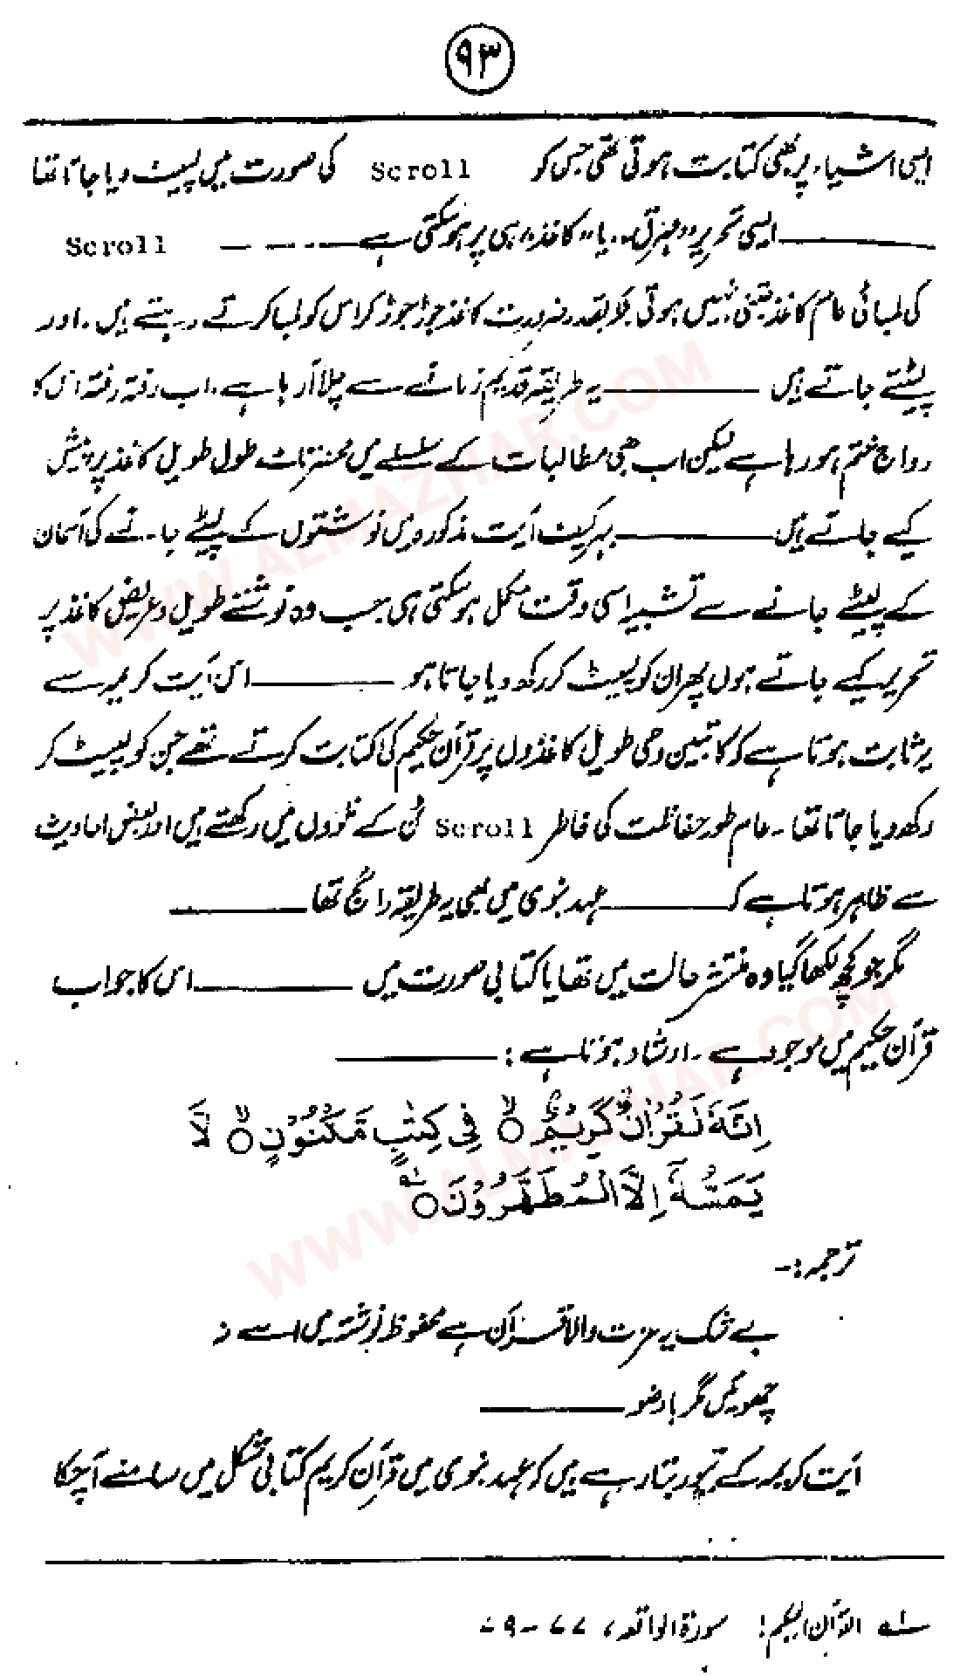 ۹۳
ایسی اشیاء پر بھی کتابت ہوتی تھی جس کو Scroll کی صورت میں لپیٹ دیا جاتا تھا
——— ایسی تحریر "مہرق" یا "کاغذ" ہی پر ہو سکتی ہے ——— Scroll
کی لمبائی عام کاغذ جتنی نہیں ہوتی بلکہ بقدر ضرورت کاغذ جوڑ جوڑ کر اس کو لمبا کرتے رہتے ہیں۔ اور
لپٹتے جاتے ہیں ——— یہ طریقہ قدیم زمانے سے چلا آ رہا ہے، اب رفتہ رفتہ اس کا
رواج ختم ہو رہا ہے لیکن اب بھی مطالبات کے سلسلے میں محضرنامے طول طویل کاغذ پر پیش
کیے جاتے ہیں ——— بہرکیف آیت مذکورہ میں نوشتوں کے لپیٹے جانے کی آسمان
کے لپیٹے جانے سے تشبیہ اسی وقت مکمل ہو سکتی ہی جب وہ نوشتے طویل و عریض کاغذ پر
تحریر کیے جاتے ہوں پھر ان کو لپیٹ کر رکھ دیا جاتا ہو ——— اس آیت کریمہ سے
یہ ثابت ہوتا ہے کہ کاتبین وحی طویل کاغذوں پر قرآن حکیم کی کتابت کرتے تھے جن کو لپیٹ کر
رکھ دیا جاتا تھا۔ عام طور حفاظت کی خاطر Scroll ٹن کے خولوں میں رکھتے ہیں اور بعض احادیث
سے ظاہر ہوتا ہے کہ ——— عہد نبوی میں بھی یہ طریقہ رائج تھا ———
مگر جو کچھ لکھا گیا وہ منتشر حالت میں تھا یا کتابی صورت میں ——— اس کا جواب
قرآن حکیم میں موجود ہے۔ ارشاد ہوتا ہے: ———
اِنَّهٗ لَقُرْاٰنٌ كَرِيْمٌ ۙ فِيْ كِتٰبٍ مَّكْنُوْنٍ ۙ لَّا
يَمَسُّهٗٓ اِلَّا الْمُطَهَّرُوْنَ ؕ
ترجمہ:-
بے شک یہ عزت والا قرآن ہے محفوظ نوشتہ میں اسے نہ
چھوئیں مگر باوضو ———
آیت کریمہ کے تیور بتا رہے ہیں کہ عہد نبوی میں قرآن کریم کتابی شکل میں سامنے آ چکا
لہ القرآن الحکیم: سورۃ الواقعہ، ۷۷-۷۹
WWW.ALMAZHAR.COM
WWW.ALMAZHAR.COM